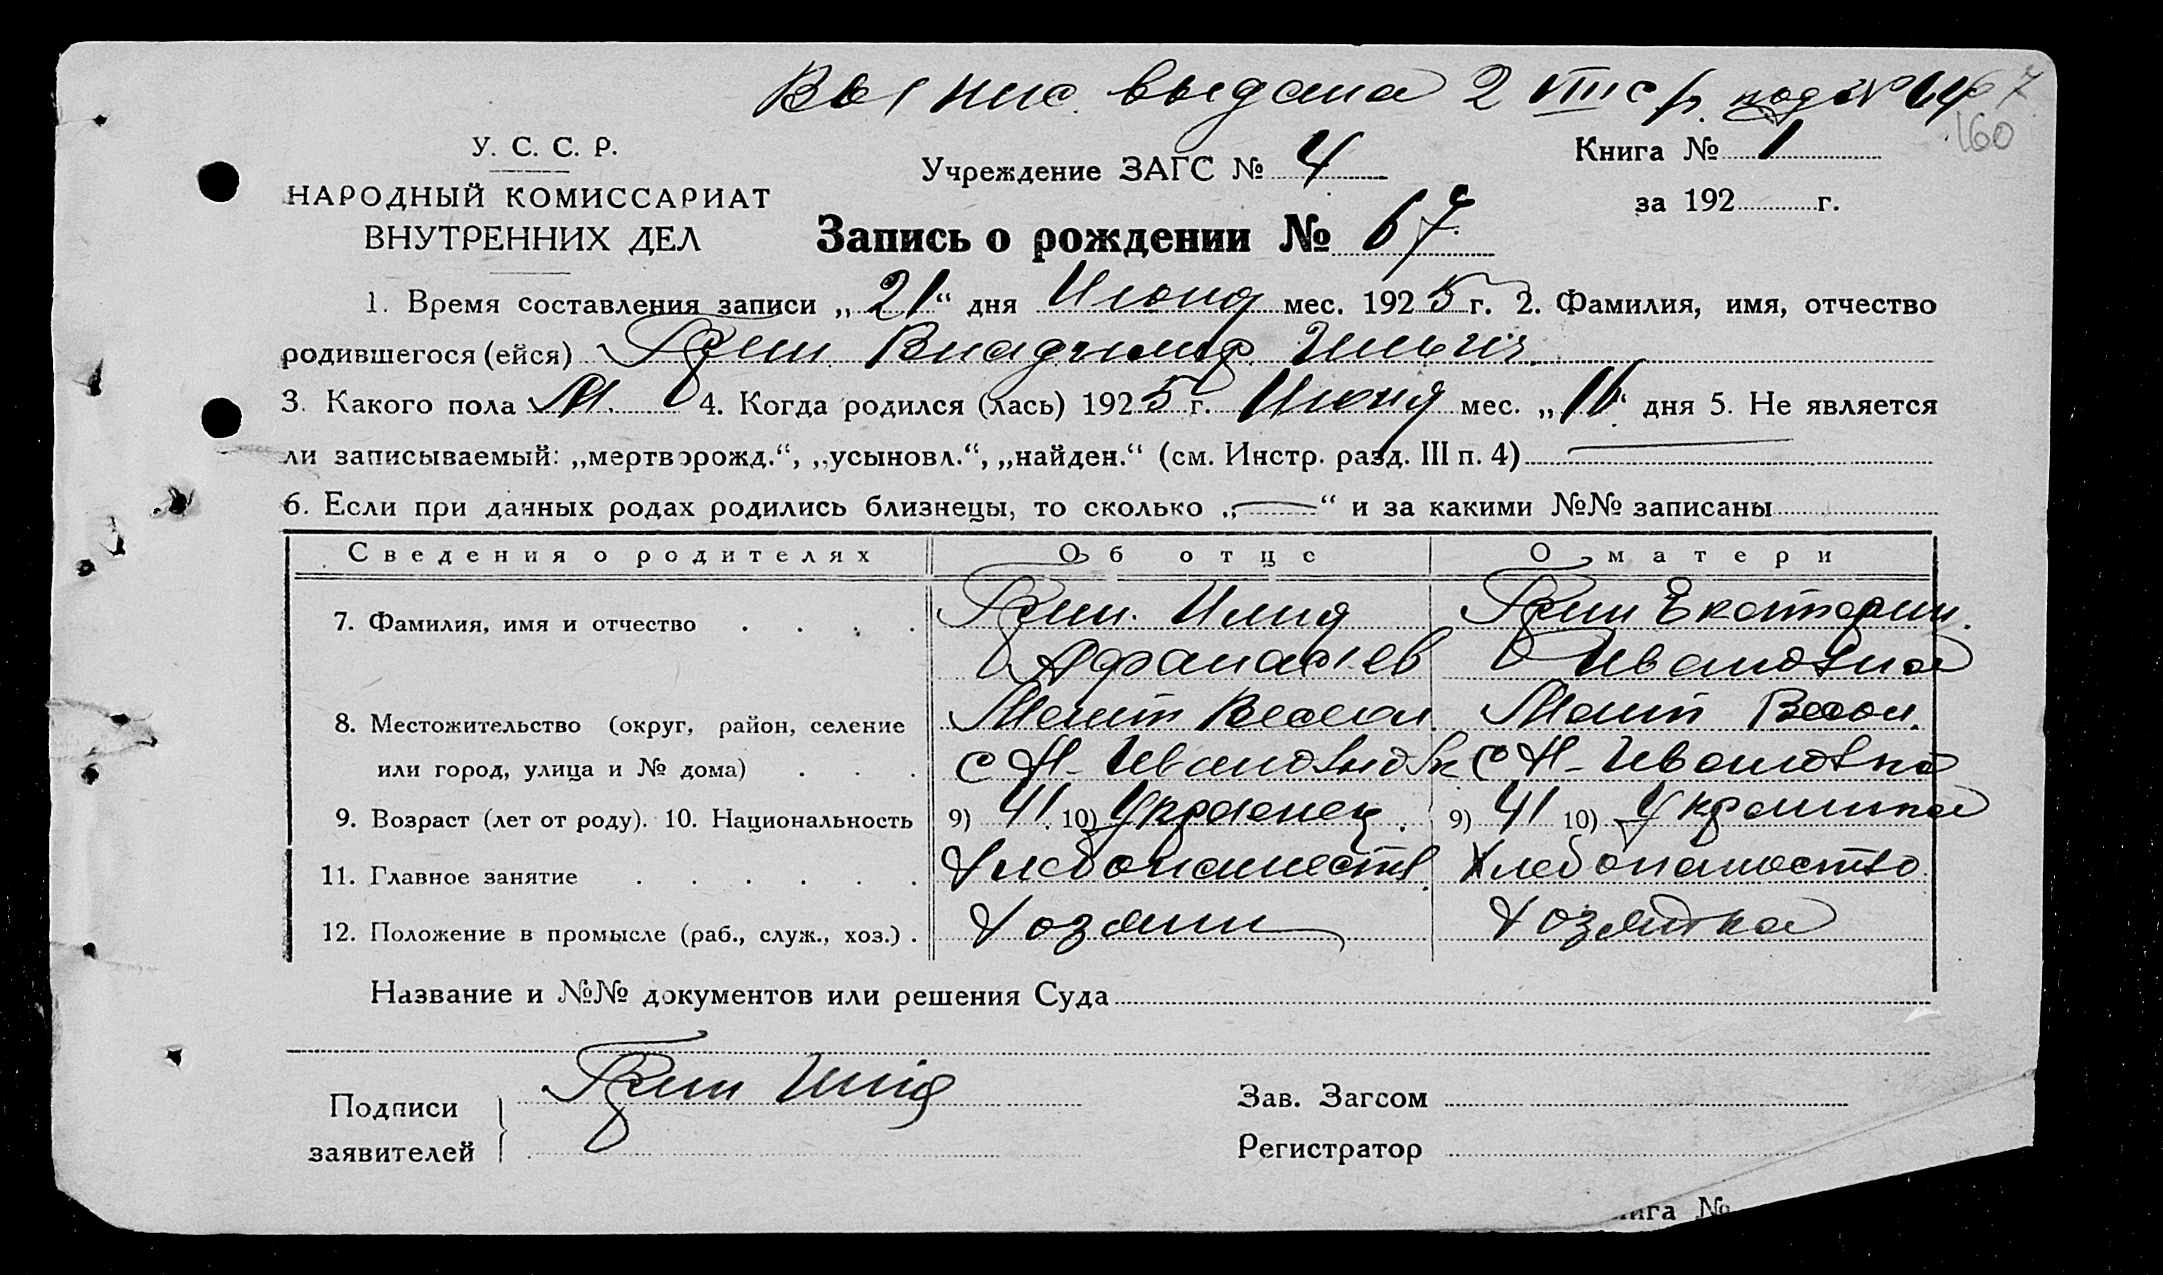 выдана 2 VIII с/г. под №
160
У. С. С. Р.
НАРОДНЫЙ КОМИССАРИАТ
ВНУТРЕННИХ ДЕЛ
Учреждение ЗАГС № 4
Книга № 1
за 192 г.
Запись о рождении № 67
1. Время составления записи „21“ дня Июня мес. 1925 г. 2. Фамилия, имя, отчество
родившегося (ейся) Грин Владимир Ильич.
3. Какого пола М. 4. Когда родился (лась) 1925 г. Июня мес. „16“ дня 5. Не является
ли записываемый: „мертворожд.“, „усыновл.“, „найден.“ (см. Инстр. разд. III п. 4)
6. Если при данных родах родились близнецы, то сколько „—“ и за какими №№ записаны
Сведения о родителях Об отце О матери
7. Фамилия, имя и отчество Грин. Илия Грин Екатерин.
Афанасиев Ивановна
8. Местожительство (округ, район, селение Весел. Весел.
или город, улица и № дома) с Н-Ивановка с Н-Ивановка
9. Возраст (лет от роду). 10. Национальность 9) 41. 10) Украенец. 9) 41 10) Украинка
11. Главное занятие Хлебопашеств. Хлебопашество
12. Положение в промысле (раб., служ., хоз.) . Хозяин Хозяйка
Название и №№ документов или решения Суда
Подписи Грин Илія
заявителей
Зав. Загсом
Регистратор
нига №